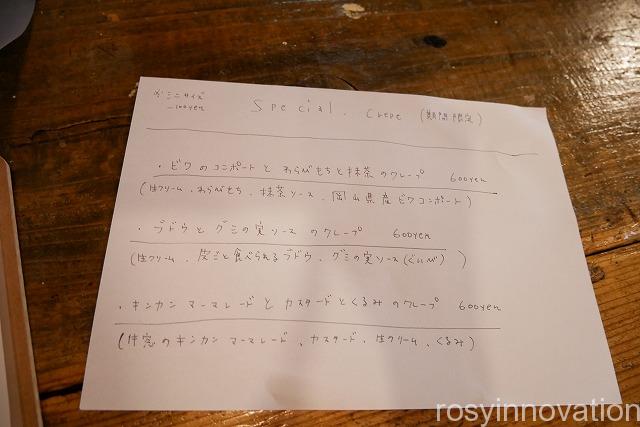 ※ミニサイズ
-100yen
Special. Crepe (期間限定)
・ビワのコンポートとわらびもちと抹茶のクレープ 600yen
(生クリーム、わらびもち、抹茶ソース、岡山県産ビワコンポート)
・ブドウとグミの実ソースのクレープ 600yen
(生クリーム、皮ごと食べられるブドウ、グミの実ソース(ぐいび))
・キンカンマーマレードとカスタードとくるみのクレープ 600yen
(牛窓のキンカンマーマレード、カスタード、生クリーム、くるみ)
rosyinnovation